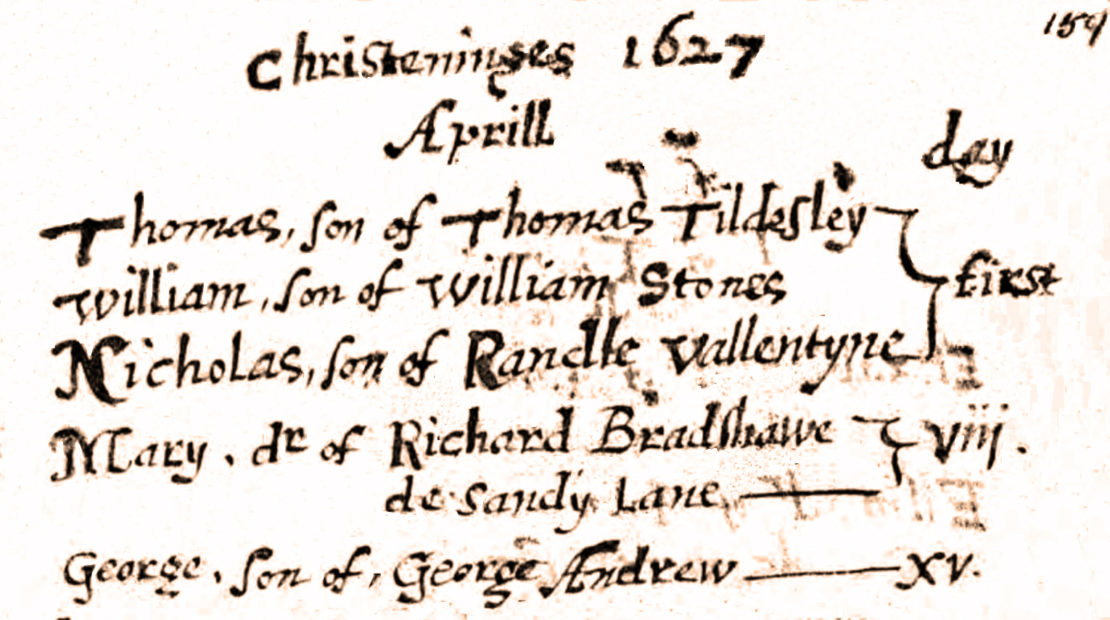 159
Christeninges 1627
Aprill
day
Thomas, son of Thomas Tildesley
William, son of William Stones first
Nicholas, son of Randle Vallentyne
Mary. dr of Richard Bradshawe viij.
de Sandy Lane
George, son of, George Andrew xv.